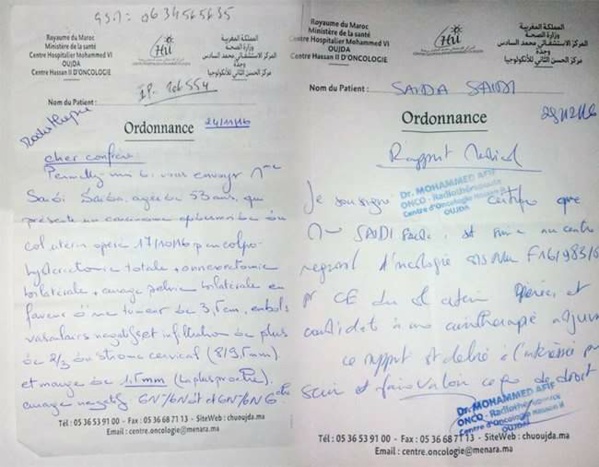 GSM: 0634565635
Royaume du Maroc
Ministère de la santé
Centre Hospitalier Mohammed VI
OUJDA
Centre Hassan II D'ONCOLOGIE
المملكة المغربية
وزارة الصحة
المركز الاستشفائي محمد السادس
وجدة
مركز الحسن الثاني للأنكولوجيا
Nom du Patient :
IP: 206554
Ordonnance
24/11/16
cher confrère
Permettez-moi de vous envoyer Mme
Saidi Saida, agée de 53 ans, qui
présente un carcinome épidermoïde du
col utérin opéré 17/10/16 par colpo-
hystérectomie totale + annexectomie
bilatérale + curage pelvien bilatérale en
faveur d'une tumeur de 3,5cm, embols
vasculaires négatifs et infiltration de plus
de 2/3 du stroma cervical (8/9,5mm)
et marge de 1,5mm (la plus proche).
curage négatif 6N-/6N et 6N-/6N
Tél : 05 36 53 91 00 - Fax : 05 36 68 71 13 - SiteWeb : chuoujda.ma
Email : centre.oncologie@menara.ma
Royaume du Maroc
Ministère de la santé
Centre Hospitalier Mohammed VI
OUJDA
Centre Hassan II D'ONCOLOGIE
المملكة المغربية
وزارة الصحة
المركز الاستشفائي محمد السادس
وجدة
مركز الحسن الثاني للأنكولوجيا
Nom du Patient :
SAIDA SAIDI
Ordonnance
Rapport Médical
Dr. MOHAMMED AFIF
ONCO - Radiothérapeute
Centre d'Oncologie Hassan II
OUJDA
Je soussigné certifie que
Mme SAIDI est suivie au centre
régional d'oncologie sous N°
pr CE du col utérin opérée, et
candidate à une curiethérapie
ce rapport est délivré à l'intéressée pr
servir et faire valoir ce que de droit
Dr. MOHAMMED AFIF
ONCO - Radiothérapeute
Centre d'Oncologie Hassan II
OUJDA
Tél : 05 36 53 91 00 - Fax : 05 36 68 71 13 - SiteWeb : chuoujda.ma
Email : centre.oncologie@menara.ma